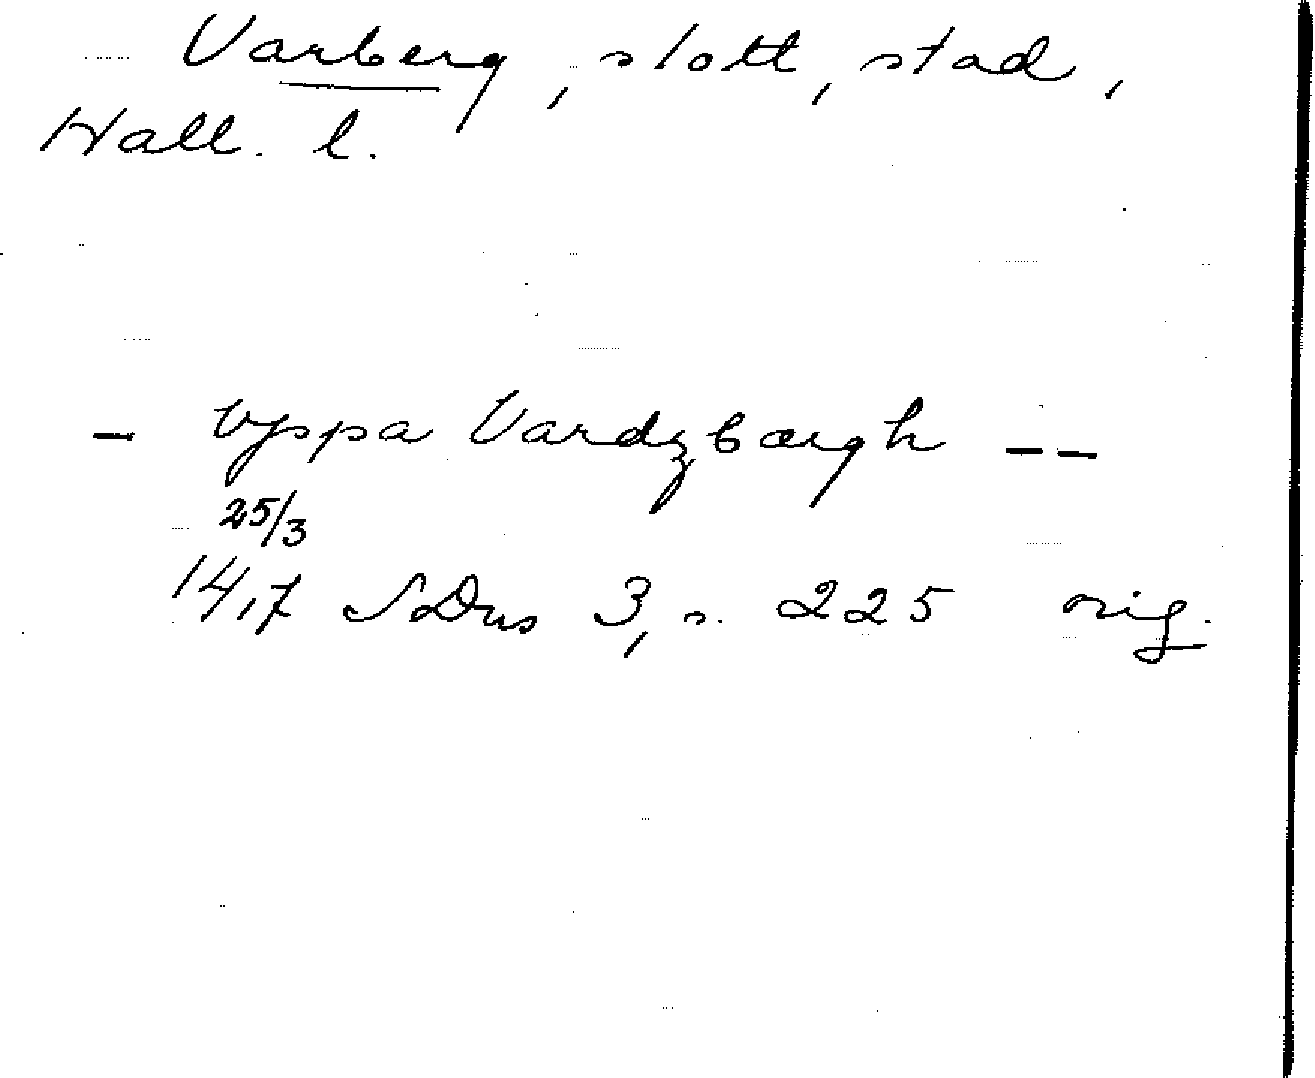 Varberg, slott, stad,
Hall. l.
- vppa Vardzbærgh --
25/3
1417 SDns 3, s. 225 orig.